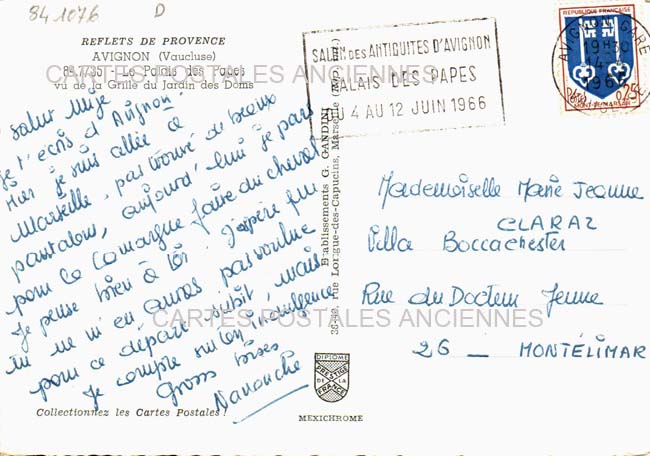 84 1076 D
REFLETS DE PROVENCE
AVIGNON (Vaucluse)
Le Palais des Papes
vu de la Grille du Jardin des Doms
CARTES POSTALES ANCIENNES
Salut
je t'écris d'Avignon
Hier je suis allée à
Marseille, pas trouvé de beaux
pantalons, aujourd'hui je pars
pour la Camargue faire du cheval
Je pense bien à toi. J'espère que
tu ne m'en auras pas voulue
pour ce départ subit, mais
Je compte sur ton indulgence
Grosses bises
Nanouche
Collectionnez les Cartes Postales !
Etablissements G. GANDINI
rue Longue-des-Capucins, Marseille
DIPLOME
PRESTIGE
DE LA
FRANCE
MEXICHROME
SALON DES ANTIQUITES D'AVIGNON
PALAIS DES PAPES
DU 4 AU 12 JUIN 1966
REPUBLIQUE FRANÇAISE
Postes 0,25
MONT-DE-MARSAN
AVIGNON GARE
Mademoiselle Marie Jeanne
CLARAZ
Villa Boccachester
Rue du Docteur Jenne
26 _ MONTÉLIMAR
CARTES POSTALES ANCIENNES